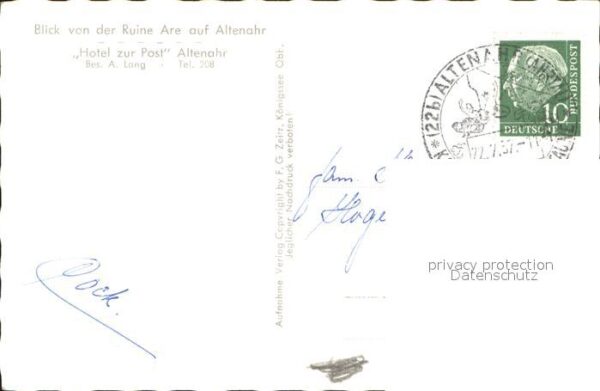 Blick von der Ruine Are auf Altenahr
„Hotel zur Post" Altenahr
Bes. A. Lang - Tel. 208
Aufnahme Verlag Copyright by F. G. Zeitz, Königssee Obb.
Jeglicher Nachdruck verboten!
(22b) ALTENAHR
22.7.57.-11
10
DEUTSCHE
BUNDESPOST
fam.
Hoge
Cock.
privacy protection
Datenschutz